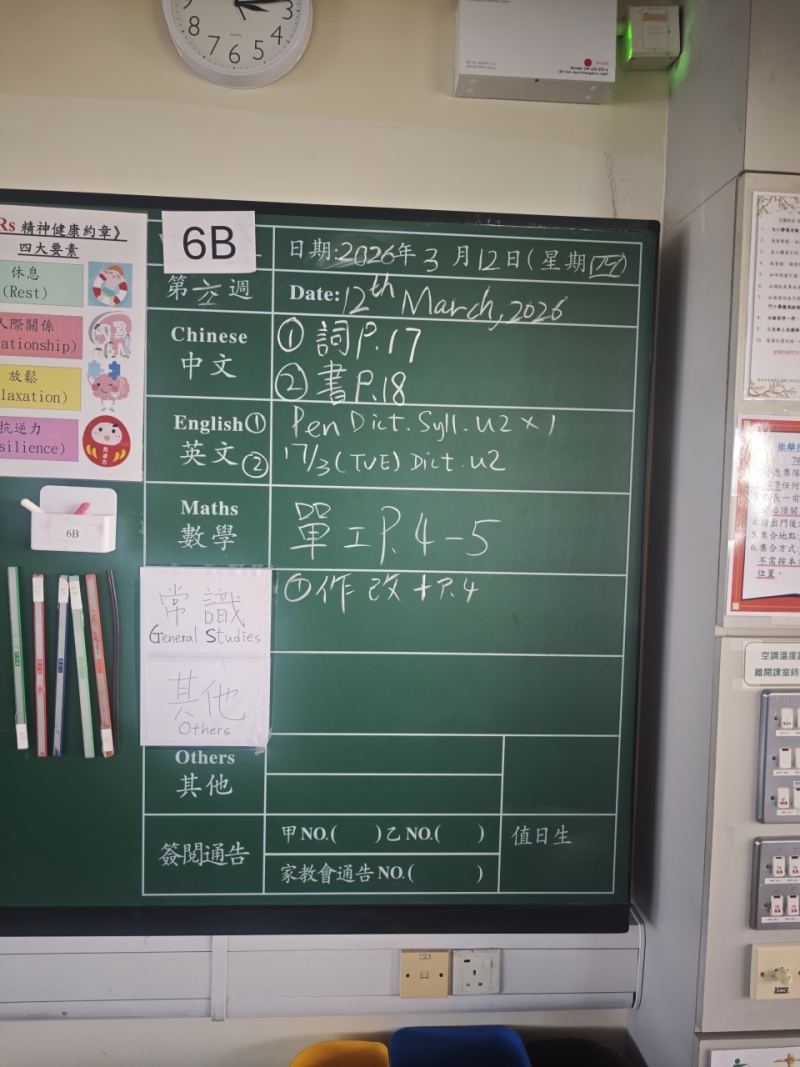 3
4
5
6
7
8
9
Rs 精神健康約章》
四大要素
休息
(Rest)
人際關係
ationship)
放鬆
laxation)
抗逆力
silience)
6B
6B
日期:2026年3月12日(星期四)
第 週
Date: 12th March, 2026
Chinese
中文
① 詞P.17
② 書P.18
English①
英文②
Pen Dict. Syll. U2 x 1
17/3 (TUE) Dict. U2
Maths
數學
單工P.4-5
常識
General Studies
①作改+P.4
其他
Others
Others
其他
簽閱通告
甲NO.( )乙NO.( )
家教會通告NO.( )
值日生
空調溫度
離開課室時